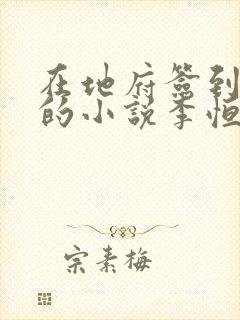 在地府签到
的小说李恒
宗素梅